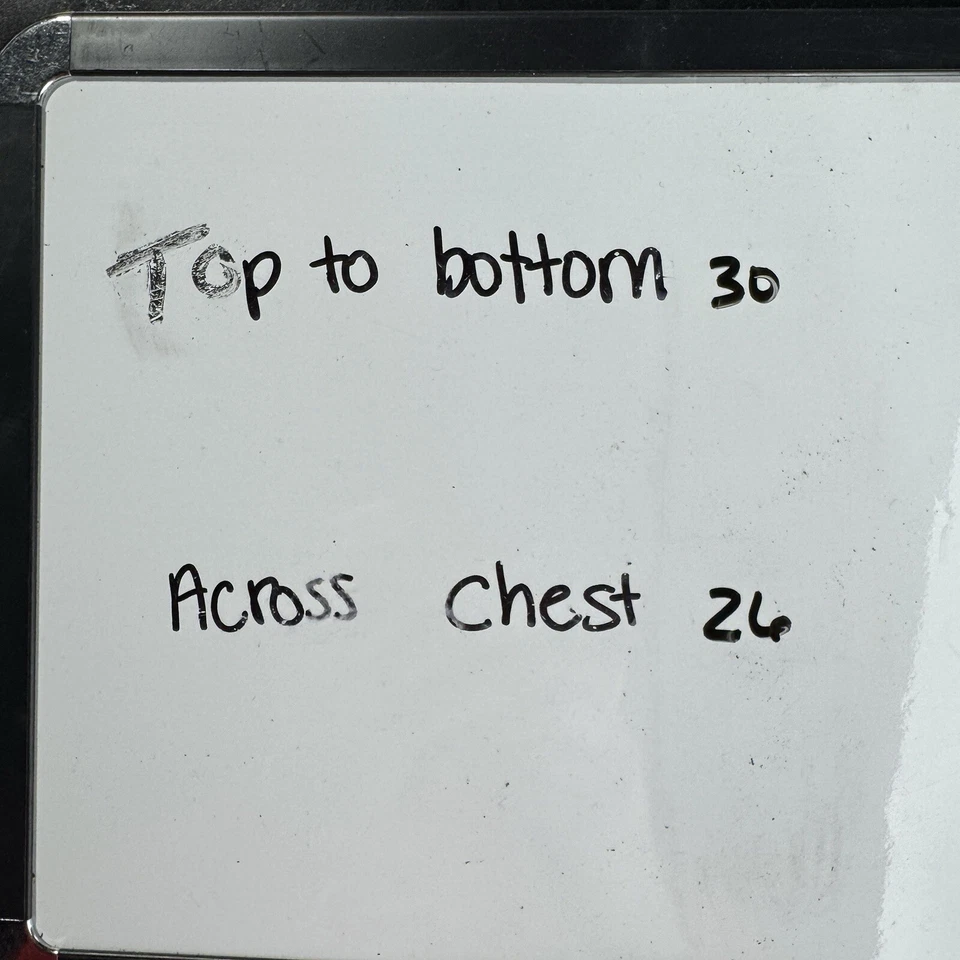 Top to bottom 30
Across chest 26